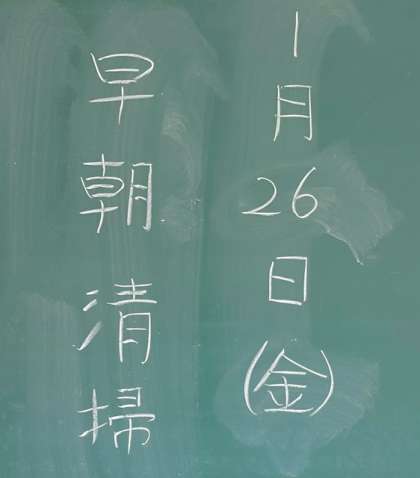 1月26日(金)
早朝清掃